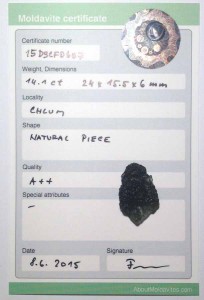 Moldavite certificate
Certificate number
Weight, Dimensions
14.1 ct 24 x 15.5 x 6 mm
Locality
CHLUM
Shape
NATURAL PIECE
Quality
A++
Special attributes
–
Date
Signature
8.6.2015
AboutMoldavites.com